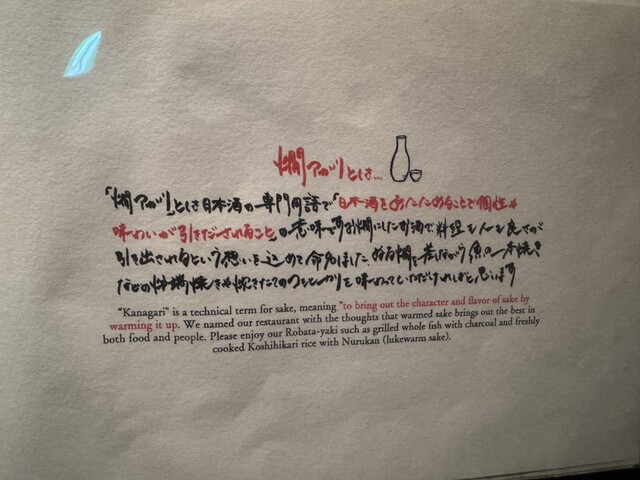 燗アガリとは…
「燗アガリ」とは日本酒の専門用語で「日本酒をあたためることで個性や
味わいが引きだされること」の意味です。お燗にしたお酒で料理も人も良さが
引き出されるという想いを込めて命名しました。ぬる燗を差しながら魚の一本焼き
などの炉端焼きや炊きたてのコシヒカリを味わっていただければと思います
"Kanagari" is a technical term for sake, meaning "to bring out the character and flavor of sake by
warming it up. We named our restaurant with the thoughts that warmed sake brings out the best in
both food and people. Please enjoy our Robata-yaki such as grilled whole fish with charcoal and freshly
cooked Koshihikari rice with Nurukan (lukewarm sake).